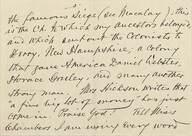 the famous Siege (see Macaulay); this
is the City to which my ancestors belonged
and which sent out the Colonists to
New Hampshire, a colony
that gave America Daniel Webster,
Horace Greeley, and many another
strong man. Mrs Hickson writes that
"a fine big lot of money" has just
come in. Praise God! Tell Miss
Chambers I am sorry every word